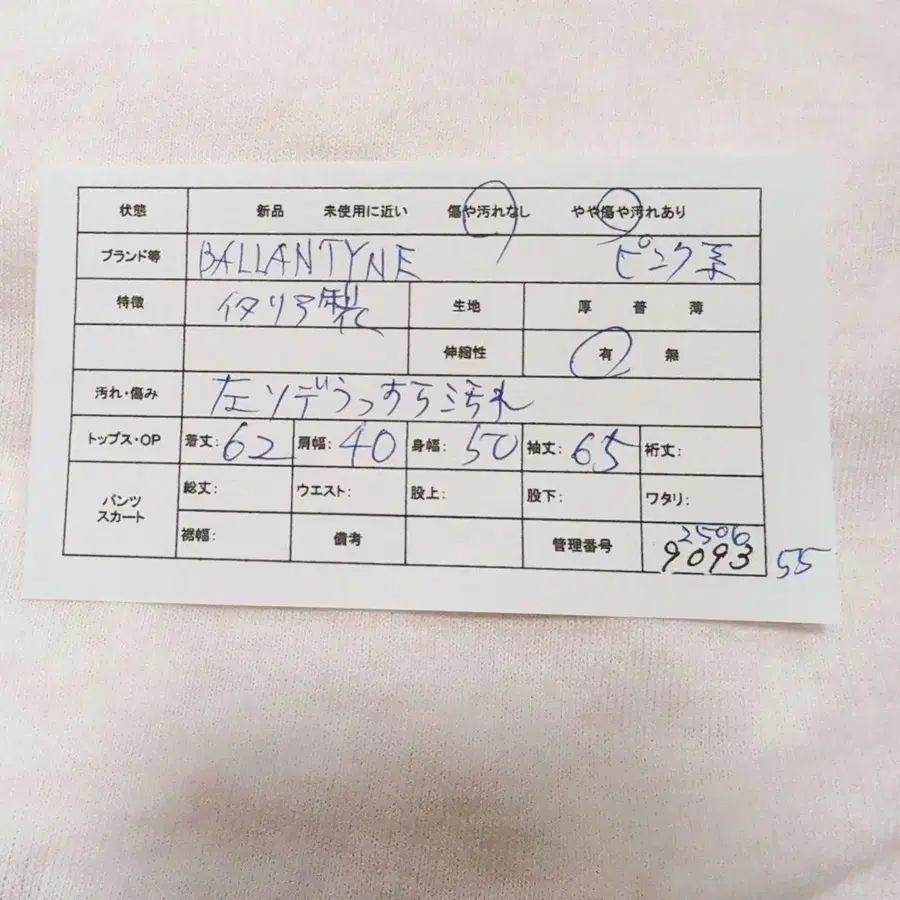 状態 新品 未使用に近い 傷や汚れなし やや傷や汚れあり
ブランド等 BALLANTYNE ピンク系
特徴 イタリア製 生地 厚 普 薄
伸縮性 有 無
汚れ・傷み 左ソデうっすら汚れ
トップス・OP 着丈:62 肩幅:40 身幅:50 袖丈:65 裄丈:
パンツ スカート 総丈: ウエスト: 股上: 股下: ワタリ:
裾幅: 備考 管理番号 2506
9093 55